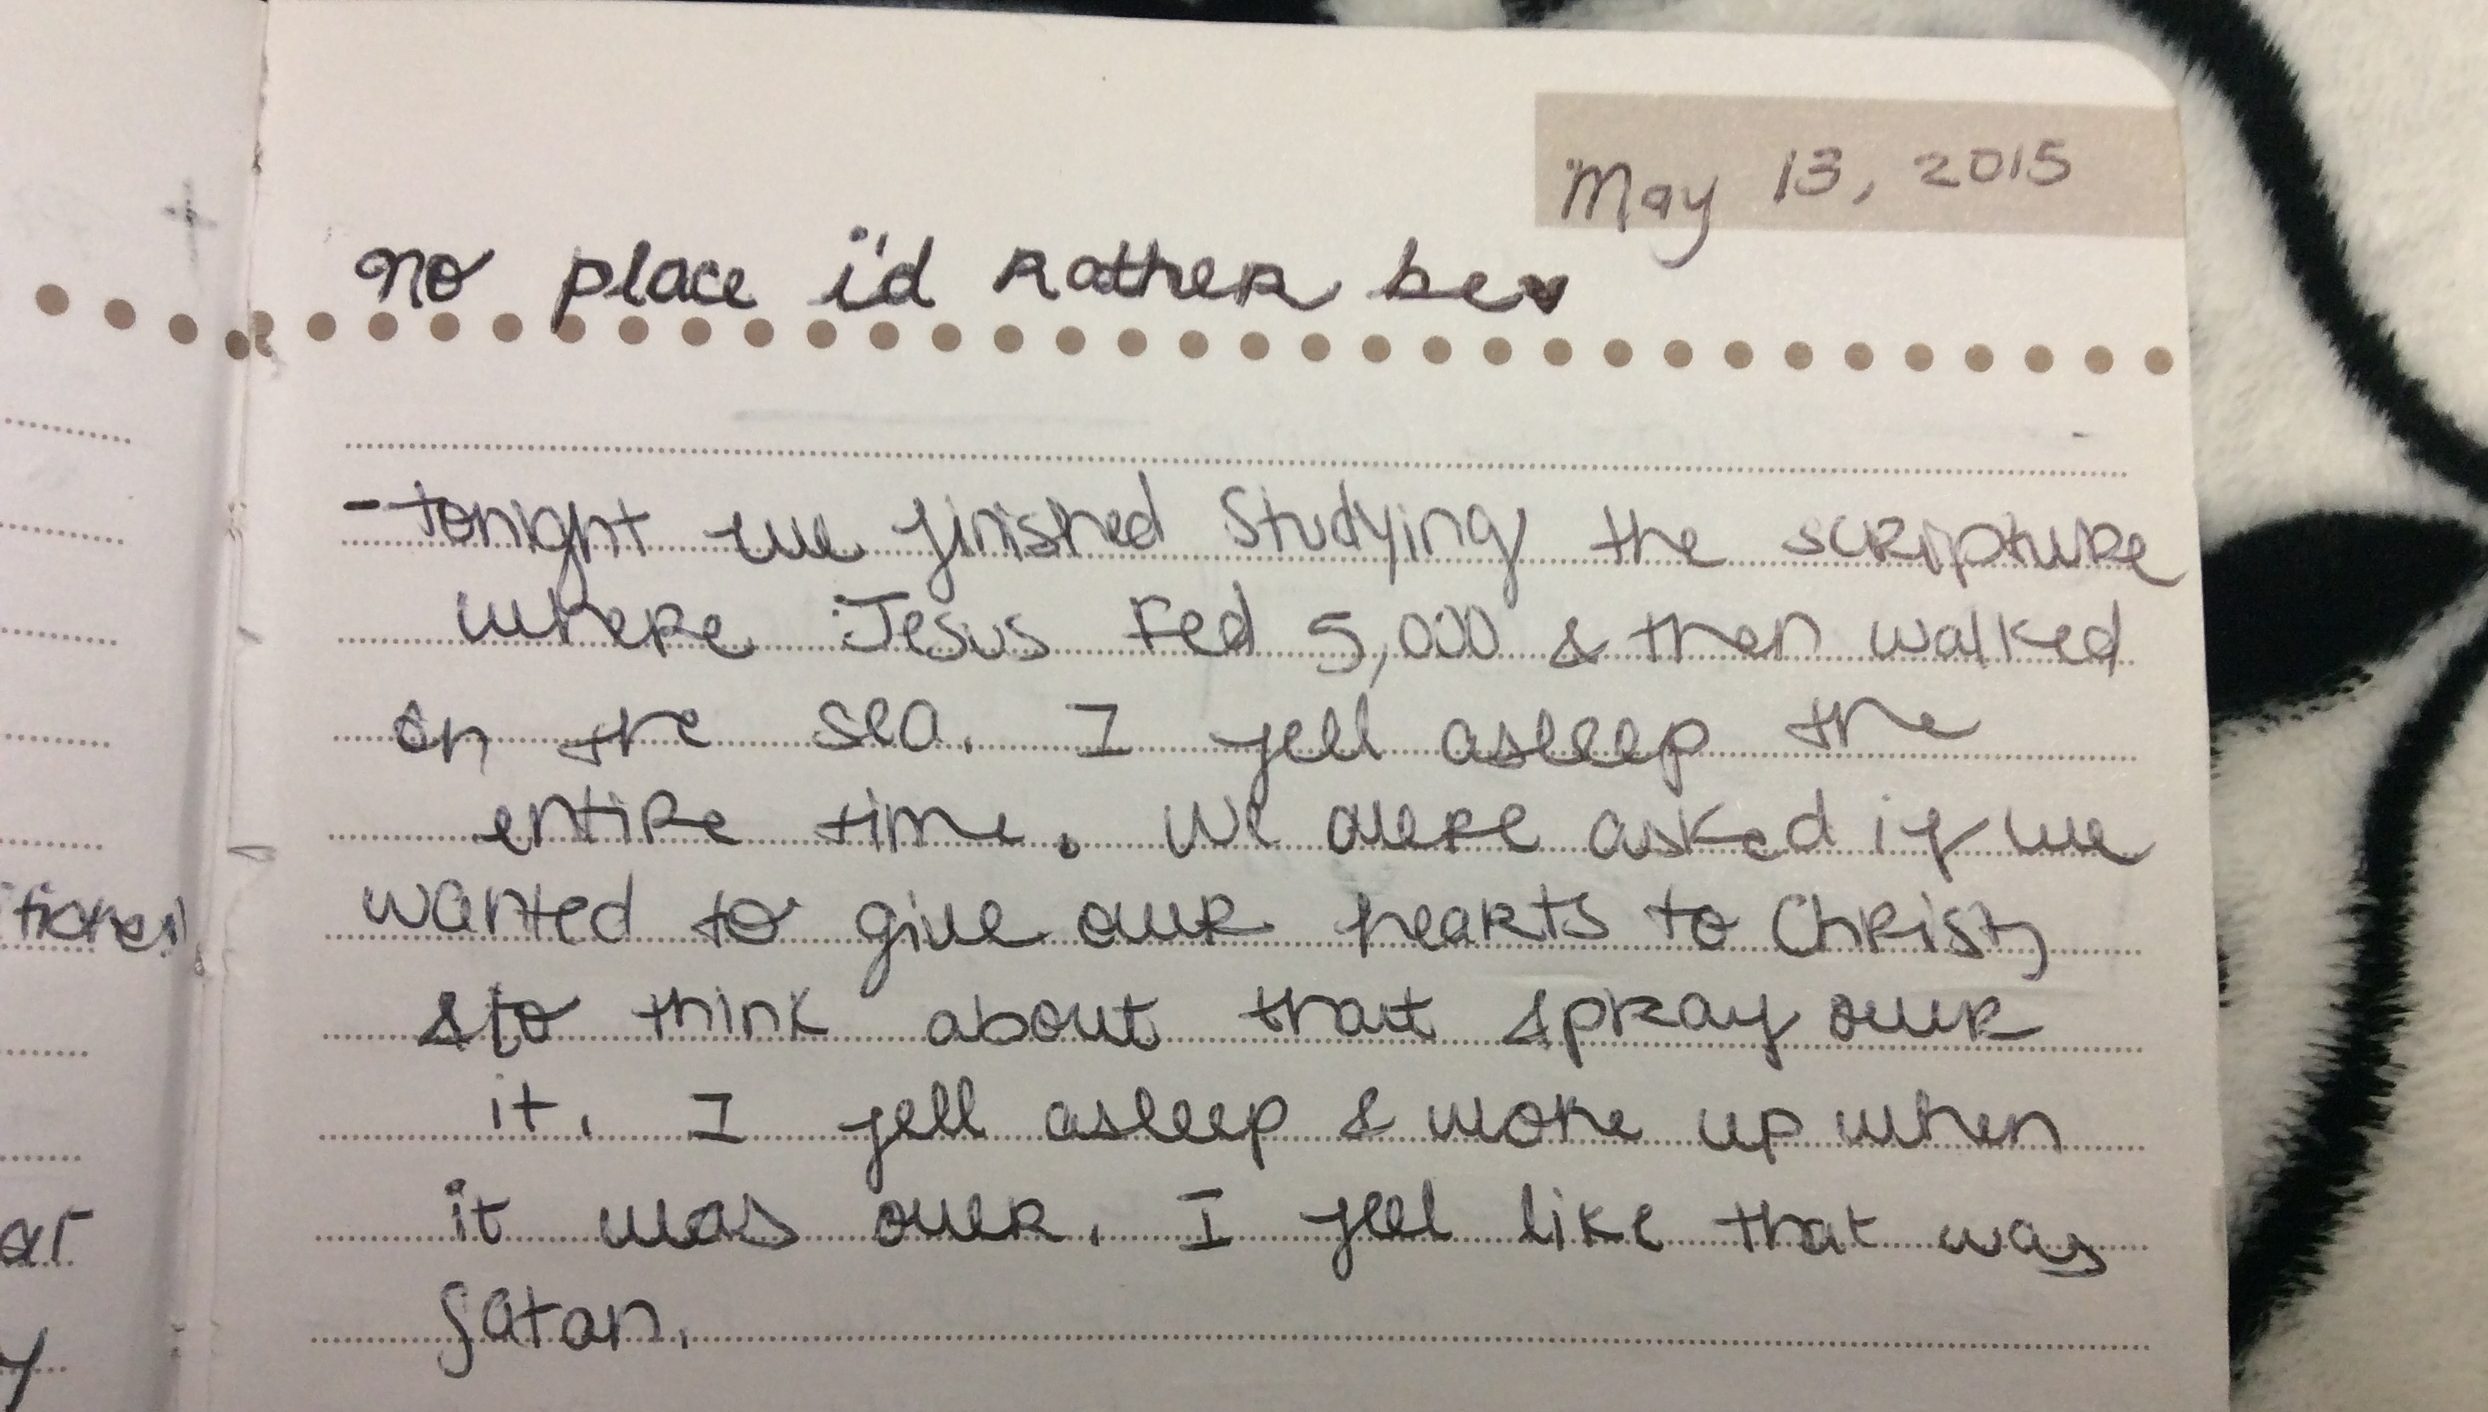 May 13, 2015
no place i'd rather be♥
- tonight we finished studying the scripture
where Jesus fed 5,000 & then walked
on the sea. I fell asleep the
entire time. We were asked if we
wanted to give our hearts to Christ,
& to think about that & pray over
it. I fell asleep & woke up when
it was over. I feel like that was
Satan.